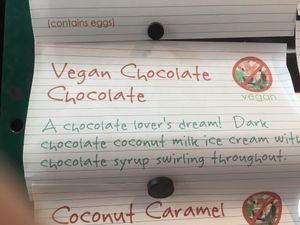 (contains eggs)
Vegan Chocolate
Chocolate
vegan
A chocolate lover's dream! Dark
chocolate coconut milk ice cream with
chocolate syrup swirling throughout.
Coconut Caramel